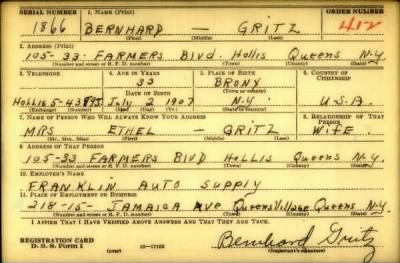 SERIAL NUMBER 1. NAME (Print) ORDER NUMBER
1866 BERNHARD — GRITZ 412
(First) (Middle) (Last)
2. ADDRESS (Print)
105-33 FARMERS Blvd. Hollis Queens N.Y.
(Number and street or R. F. D. number) (Town) (County) (State)
3. TELEPHONE 4. AGE IN YEARS 5. PLACE OF BIRTH 6. COUNTRY OF CITIZENSHIP
33 BRONX
DATE OF BIRTH
Hollis 5-4389J July 2 1907 N.Y. U.S.A.
(Exchange) (Number) (Mo.) (Day) (Yr.) (State or country)
7. NAME OF PERSON WHO WILL ALWAYS KNOW YOUR ADDRESS 8. RELATIONSHIP OF THAT PERSON
MRS ETHEL — GRITZ WIFE
(Mr., Mrs., Miss) (First) (Middle) (Last)
9. ADDRESS OF THAT PERSON
105-33 FARMERS BLVD HOLLIS Queens N.Y.
(Number and street or R. F. D. number) (Town) (County) (State)
10. EMPLOYER'S NAME
FRANKLIN AUTO SUPPLY
11. PLACE OF EMPLOYMENT OR BUSINESS
218-15- JAMAICA AVE Queens Village Queens N.Y.
(Number and street or R. F. D. number) (Town) (County) (State)
I AFFIRM THAT I HAVE VERIFIED ABOVE ANSWERS AND THAT THEY ARE TRUE.
REGISTRATION CARD
D. S. S. Form 1 16-17105 Bernhard Gritz
(Registrant's signature)